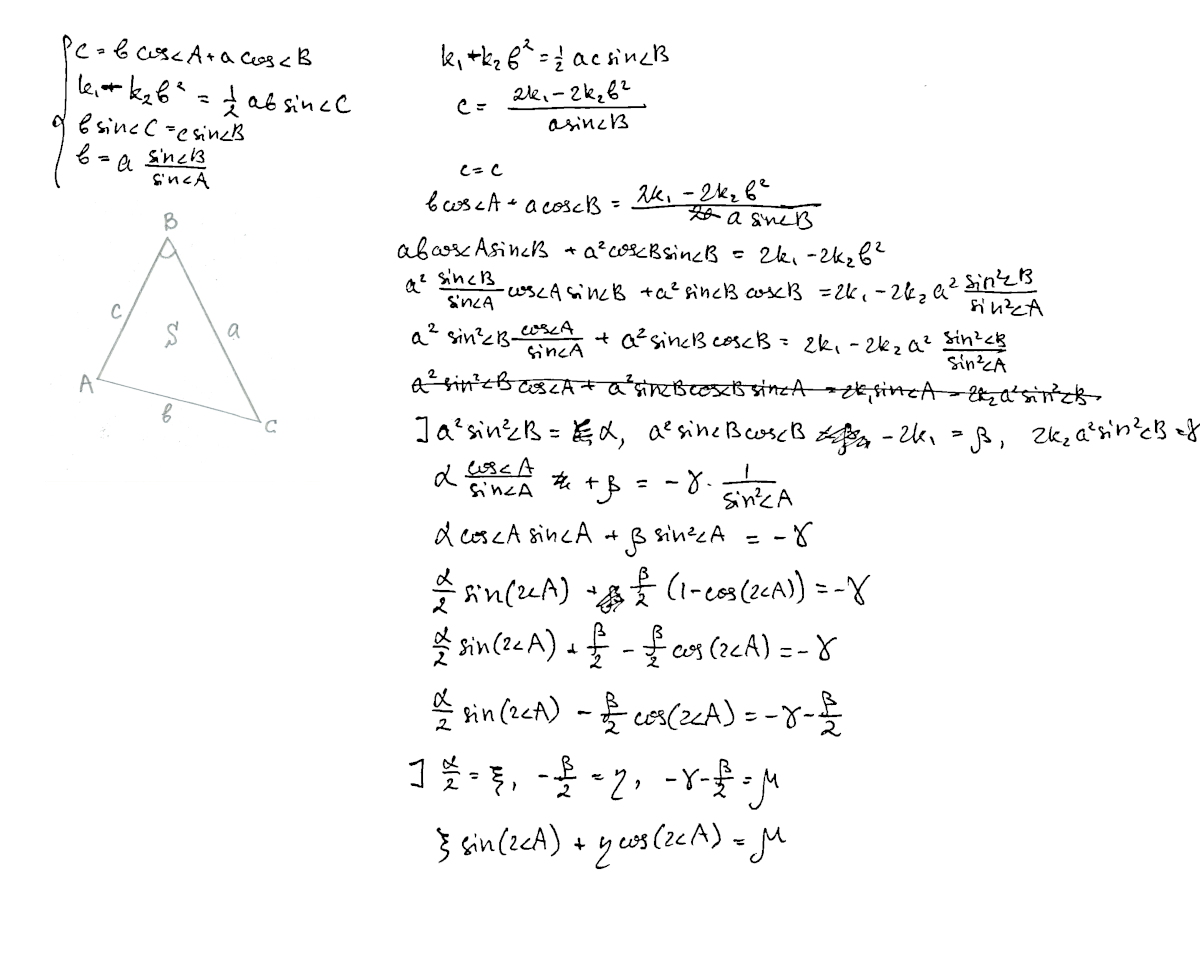 c = b cos∠A + a cos∠B
k₁ + k₂b² = ½ ab sin∠C
b sin∠C = c sin∠B
b = a sin∠B / sin∠A
B
c
S
a
A
b
C
k₁ + k₂b² = ½ ac sin∠B
c = (2k₁ - 2k₂b²) / (a sin∠B)
c = c
b cos∠A + a cos∠B = (2k₁ - 2k₂b²) / (a sin∠B)
ab cos∠A sin∠B + a² cos∠B sin∠B = 2k₁ - 2k₂b²
a² (sin∠B / sin∠A) cos∠A sin∠B + a² sin∠B cos∠B = 2k₁ - 2k₂a² (sin²∠B / sin²∠A)
a² sin²∠B (cos∠A / sin∠A) + a² sin∠B cos∠B = 2k₁ - 2k₂a² (sin²∠B / sin²∠A)
a² sin²∠B cos∠A + a² sin∠B cos∠B sin∠A = 2k₁ sin∠A - 2k₂a² sin²∠B
] a² sin²∠B = α, a² sin∠B cos∠B - 2k₁ = β, 2k₂a² sin²∠B = γ
α (cos∠A / sin∠A) + β = -γ · (1 / sin²∠A)
α cos∠A sin∠A + β sin²∠A = -γ
α/2 sin(2∠A) + β/2 (1 - cos(2∠A)) = -γ
α/2 sin(2∠A) + β/2 - β/2 cos(2∠A) = -γ
α/2 sin(2∠A) - β/2 cos(2∠A) = -γ - β/2
] α/2 = ξ, -β/2 = η, -γ - β/2 = μ
ξ sin(2∠A) + η cos(2∠A) = μ